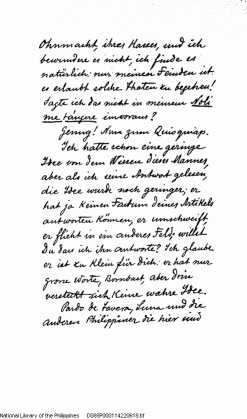 Ohnmacht, ihres Hasses, und ich
bewundere es nicht, ich finde es
natürlich: nur meinen Feinden ist
es erlaubt solche Thaten zu begehen!
Sagte ich das nicht in meinem Noli
me tángere im voraus?
Genug! Nun zum Quioquiap.
Ich hatte schon eine geringe
Idee von dem Wissen dieses Mannes,
aber als ich seine Antwort gelesen,
die Idee wurde noch geringer; er
hat ja keinen Factum deines Artikels
antworten können, er umschweift,
er flieht in ein anderes Feld; willst
Du dass ich ihn antworte? Ich glaube
er ist zu klein für dich: er hat nur
grosse Worte, Bombast, aber drin
versteckt sich keine wahre Idee.
Pardo de Tavera, Luna und die
anderen Philippiner die hier sind
National Library of the Philippines